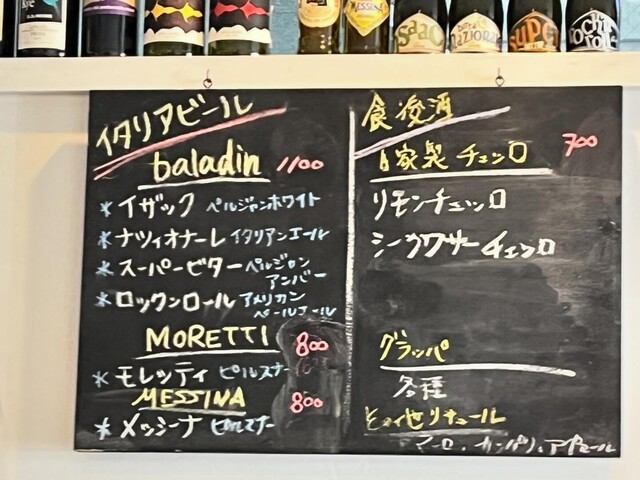 Rye
MESSINA
ISAAC
Nazionale
SUPER
rock'n roll
イタリアビール
baladin 1100
*イザック ベルジャンホワイト
*ナツィオナーレ イタリアンエール
*スーパービター ベルジャン
アンバー
*ロックンロール アメリカン
ペールエール
MORETTI 800
*モレッティ ピルスナー
MESSINA 800
*メッシーナ ピルスナー
食後酒
自家製チェッロ 700
リモンチェッロ
シークワサーチェッロ
グラッパ
各種
その他リキュール
アマーロ、カンパリ、アペロール